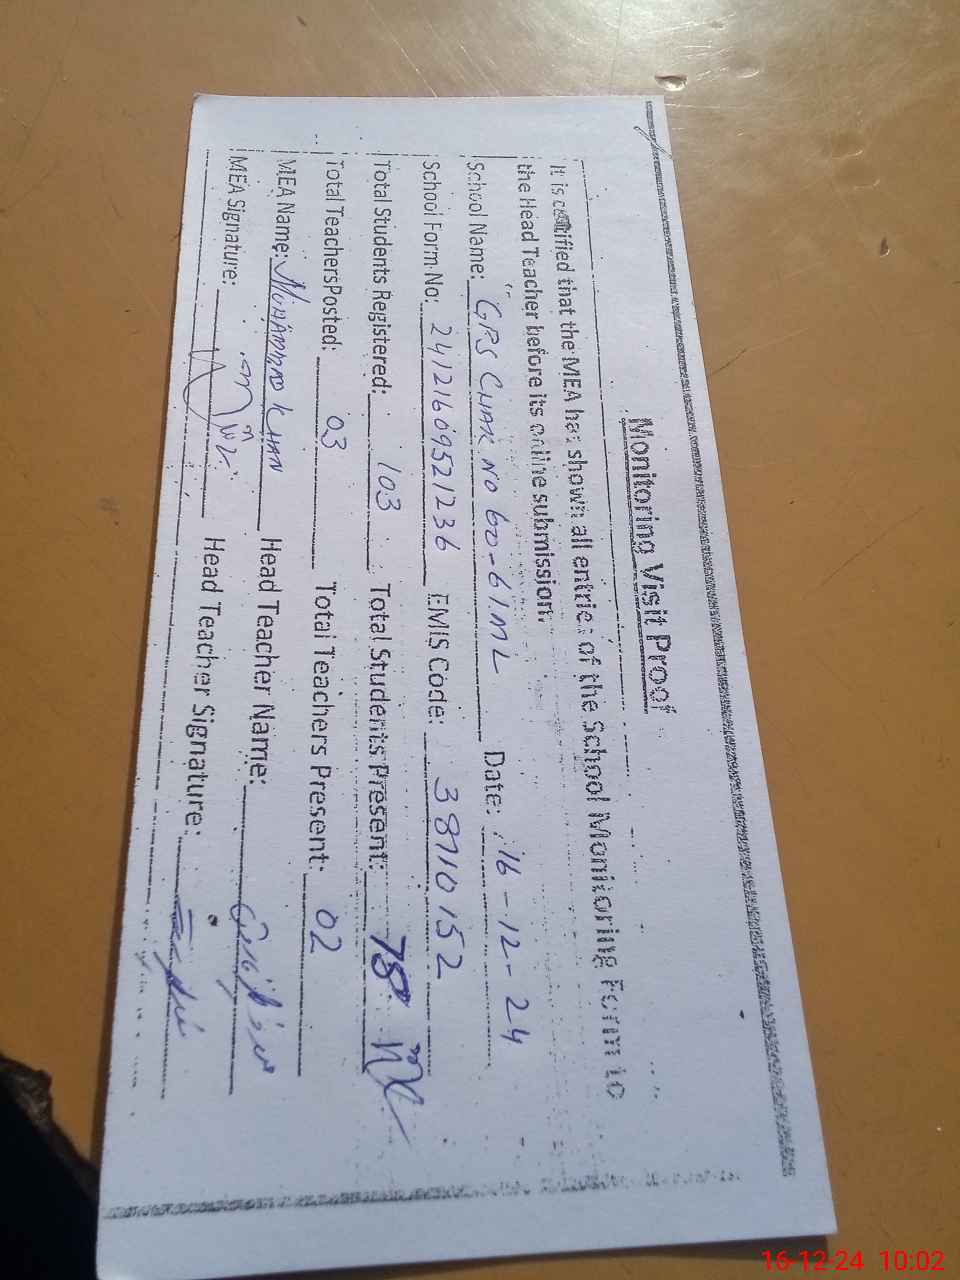 Monitoring Visit Proof
It is certified that the MEA has shown all entries of the School Monitoring Form to
the Head Teacher before its online submission.
School Name: GPS CHAK NO 60-61.ML Date: 16-12-24
School Form No: 24121609521236 EMIS Code: 38710152
Total Students Registered: 103 Total Students Present: 78
Total Teachers Posted: 03 Total Teachers Present: 02
MEA Name: MUHAMMAD KHAN Head Teacher Name:
MEA Signature: Head Teacher Signature:
16-12-24 10:02